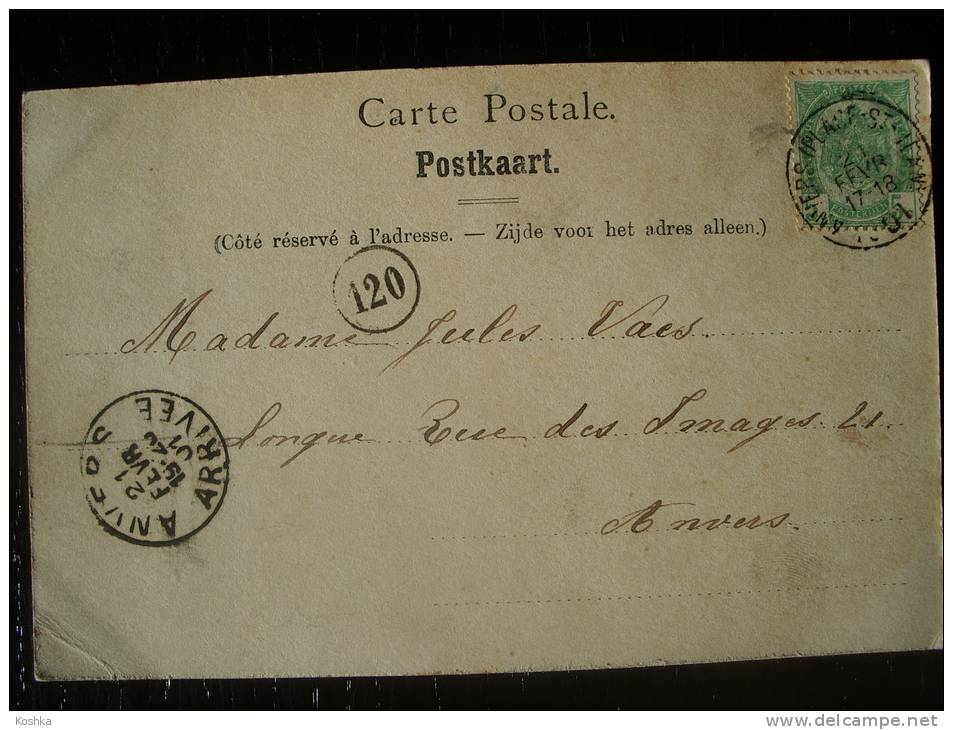 Carte Postale.
Postkaart.
(Côté réservé à l'adresse. — Zijde voor het adres alleen.)
ANVERS (PLACE-ST-JEAN)
21
FEVR
17-18
1901
120
Madame Jules Vaes.
Longue Rue des Images 21.
Anvers.
ANVERS
21
FEVR
01
ARRIVÉE
Koshka
www.delcampe.net